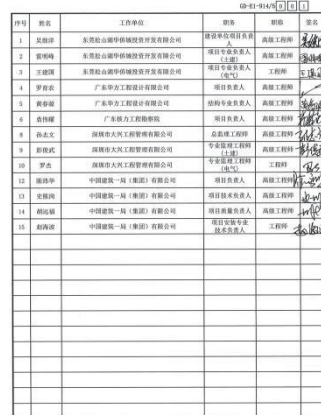 GD-E1-914/5 0 0 1
序号 姓名 工作单位 职务 职称 签名
1 东莞松山湖华侨城投资开发有限公司 建设单位项目负责人 高级工程师
2 雷明峰 东莞松山湖华侨城投资开发有限公司 项目专业负责人(土建) 高级工程师
3 王建国 东莞松山湖华侨城投资开发有限公司 项目专业负责人(电气) 工程师
4 罗育农 广东华方工程设计有限公司 项目负责人 高级工程师
5 黄春源 广东华方工程设计有限公司 结构专业负责人 高级工程师
6 袁伟耀 广东核力工程勘察院 项目负责人 高级工程师
8 孙志文 深圳市大兴工程管理有限公司 总监理工程师 高级工程师
9 彭俊武 深圳市大兴工程管理有限公司 专业监理工程师(土建) 高级工程师
10 罗杰 深圳市大兴工程管理有限公司 专业监理工程师(电气) 工程师
12 中国建筑一局(集团)有限公司 项目负责人 高级工程师
13 中国建筑一局(集团)有限公司 项目技术负责人 高级工程师
14 胡远福 中国建筑一局(集团)有限公司 项目质量负责人 高级工程师
15 赵海波 中国建筑一局(集团)有限公司 项目安装专业技术负责人 工程师